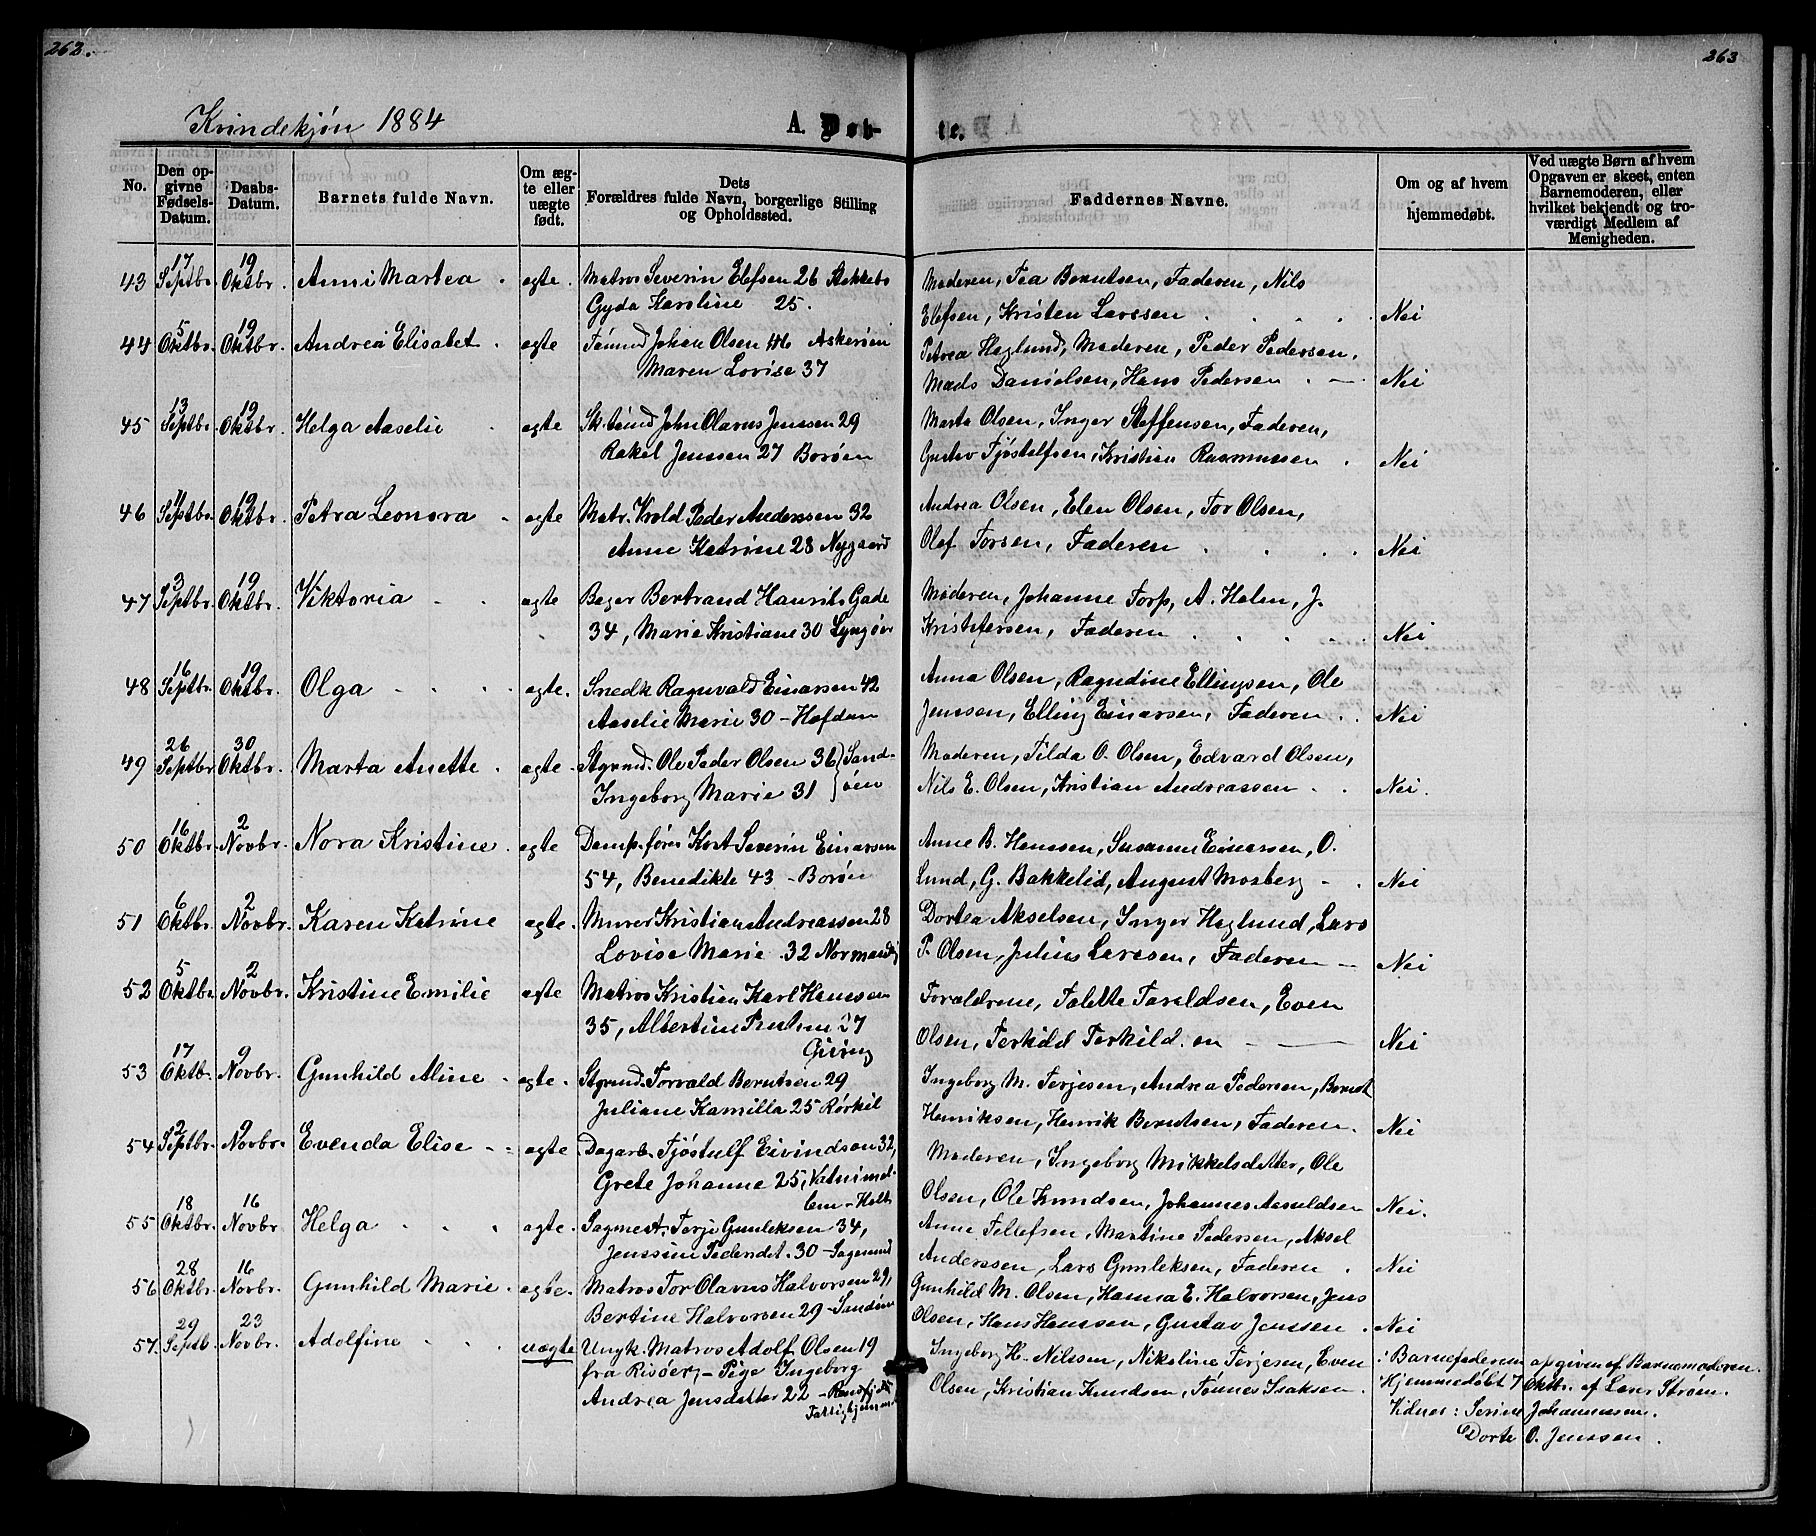 262.
263
Kvindekjøn 1884
A. Døb-
te.
No.
Den op-
givne
Fødsels-
Datum.
Daabs-
Datum.
Barnets fulde Navn.
Om æg-
te eller
uægte
født.
Dets
Forældres fulde Navn, borgerlige Stilling
og Opholdssted.
Faddernes Navne.
Om og af hvem
hjemmedøbt.
Ved uægte Børn af hvem
Opgaven er skeet, enten
Barnemoderen, eller
hvilket bekjendt og tro-
værdigt Medlem af
Menigheden.
43 17 Septbr. 19 Oktbr. Anni Martea ægte. Matros Severin Elefsen 26 Moderen, Tea Berntsen, Faderen, Nils
Gyda Karoline 25. Elefsen, Kristen Larssen Nei
44 5 Oktbr. 19 Oktbr. Andrea Elisabet ægte Johan Olsen 46 Askerøen Petrea Heglund, Moderen, Peder Pedersen,
Maren Lovise 37 Mads Danielsen, Hans Pedersen Nei
45 13 Septbr. 19 Oktbr. Helga Aaselie ægte John Olavus Jenssen 29 Marta Olsen, Inger Steffensen, Faderen,
Rakel Jenssen 27 Borøen Gustav Fjøstelfsen, Kristian Rasmussen Nei
46 11 Septbr. 19 Oktbr. Petra Leonora ægte Matr. Vrold Peder Anderssen 32 Andrea Olsen, Elen Olsen, Tor Olsen,
Anne Katrine 28 Nygaard Olef Torsen, Faderen Nei
47 3 Septbr. 19 Oktbr. Viktoria ægte Bager Bertrand Hanrits Gade Moderen, Johanne Torp, A. Holm, J.
34, Marie Kristiane 30 Lyngør Kristofersen, Faderen Nei
48 16 Septbr. 19 Oktbr. Olga ægte. Snedk Ragnvald Einarsen 42 Anna Olsen, Ragndine Ellingsen, Ole
Aaselie Marie 30 - Hafdan Jenssen, Elling Einarsen, Faderen Nei
49 26 Septbr 30 Oktbr. Marta Anette ægte. Strand. Ole Peder Olsen 36 Sand- Moderen, Tilda O. Olsen, Edvard Olsen,
Ingeborg Marie 31 øen Nils E. Olsen, Kristian Andreassen Nei.
50 16 Oktbr. 2 Novbr. Nora Kristine ægte Dampfører Kort Severin Einarsen Anne B. Hanssen, Susanne Einarssen, O.
54, Benedikte 43 - Borøen Lund, G. Bakkelid, August Mosberg Nei
51 6 Oktbr. 2 Novbr. Karen Katrine ægte. Murer Kristian Andreassen 28 Dortea Akselsen, Inger Heglund, Lars
Lovise Marie 32 Normandvig P. Olsen, Julius Larssen, Faderen Nei
52 5 Oktbr 2 Novbr. Kristine Emilie ægte Matros Kristian Karl Hanssen Forældrene, Talette Taraldsen, Even
35, Albertine 27 Olsen, Terkild Terkildsen Nei
Giving
53 17 Oktb. 9 Novbr. Gunhild Aline ægte. Strand. Torvald Berntsen 29 Ingeborg M. Terjesen, Andrea Pedersen, Berndt
Juliane Kamilla 25 Rørkil Henriksen, Henrik Berntsen, Faderen. Nei
54 2 Septbr. 9 Novbr. Evenda Elise ægte. Dagarb. Fjøstulf Eivindsen 32, Moderen, Ingeborg Mikkelsdatter, Ole
Grete Johanne 25, Olsen, Ole Knudsen, Johannes Aasuldsen Nei.
Em - Holt
55 18 Oktbr. 16 Novbr. Helga ægte. Sagmest. Terje Gunleksen 34, Anne Tellefsen, Martine Pedersen, Aksel
Jenssine Pedersdet. 30 - Sagesund Anderssen, Lars Gunleksen, Faderen Nei
56 28 Oktbr. 16 Novbr. Gunhild Marie ægte. Matros Tor Olavus Halvorsen 29, Gunhild M. Olsen, Hanna E. Halvorsen, Jens
Bertine Halvorsen 29 - Sandøen Olsen, Hans Hanssen, Gustav Jenssen Nei
57. 29 Septb. 23 Novbr. Adolfine uægte Ungk. Matros Adolf Olsen 19 Ingeborg H. Nilssen, Nikoline Terjesen, Even Barnefaderen opgiven af Barnemoderen.
fra Risøer, - Pige Ingeborg Olsen, Kristian Knudsen, Tønnes Isaksen. Hjemmedøbt 7 Oktbr. af Lars Strøm.
Andrea Jensdatter 22 - Vidner: Serine Johannessen.
Fattighjemmet Dorte O. Jenssen.